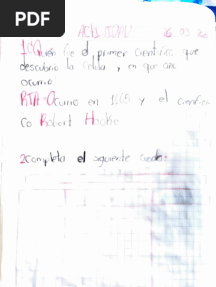 PDF
ACTIVIDAD
1 Quien fue el primer cientifico que
descubrio la celula, en que año
ocurrio
RTA: Ocurrio en 1665 y el cientifi
co Robert Hooke
2 completa el siguiente cuadro